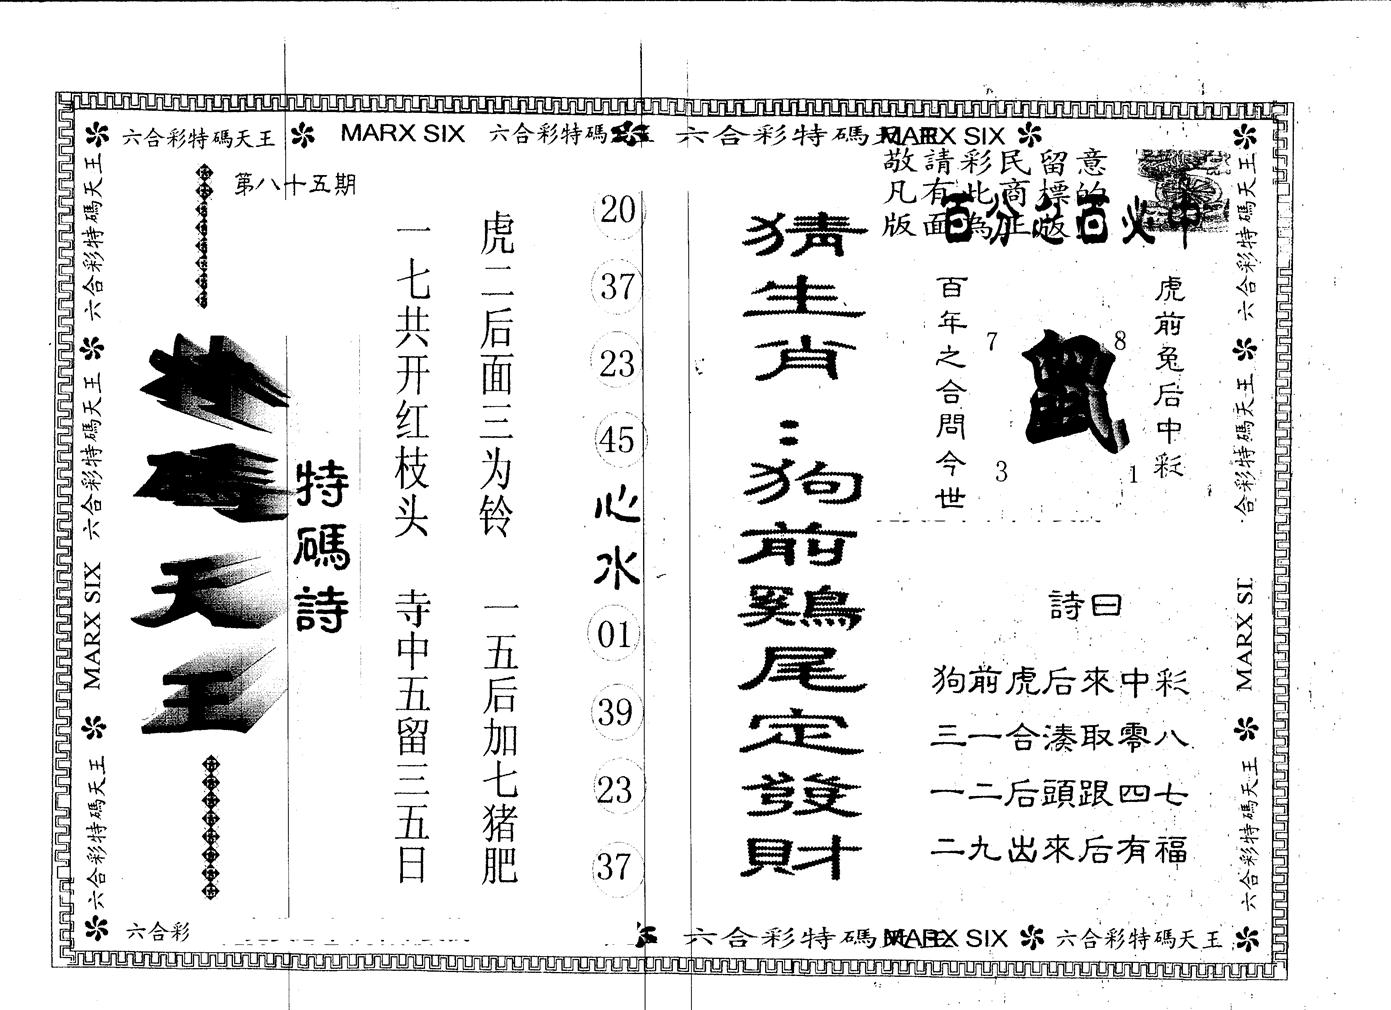 六合彩特碼天王 MARX SIX 六合彩特碼天王 六合彩特碼天王 MARX SIX
敬請彩民留意
凡有此商標的
版面為正版
百分之百必中
第八十五期
特碼天王
特碼詩
一七共开红枝头 寺中五留三五日
虎二后面三为铃 一五后加七猪肥
20
37
23
45
心水
01
39
23
37
猜生肖：狗前鷄尾定發財
虎前兔后中彩
百年之合問今世
鼠
7
8
3
1
詩曰
狗前虎后來中彩
三一合湊取零八
一二后頭跟四七
二九出來后有福
六合彩特碼天王
六合彩特碼天王
MARX SIX
六合彩特碼天王
六合彩特碼天王
合彩特碼天王
MARX SI
六合彩特碼天王
六合彩
六合彩特碼天王 MARX SIX 六合彩特碼天王